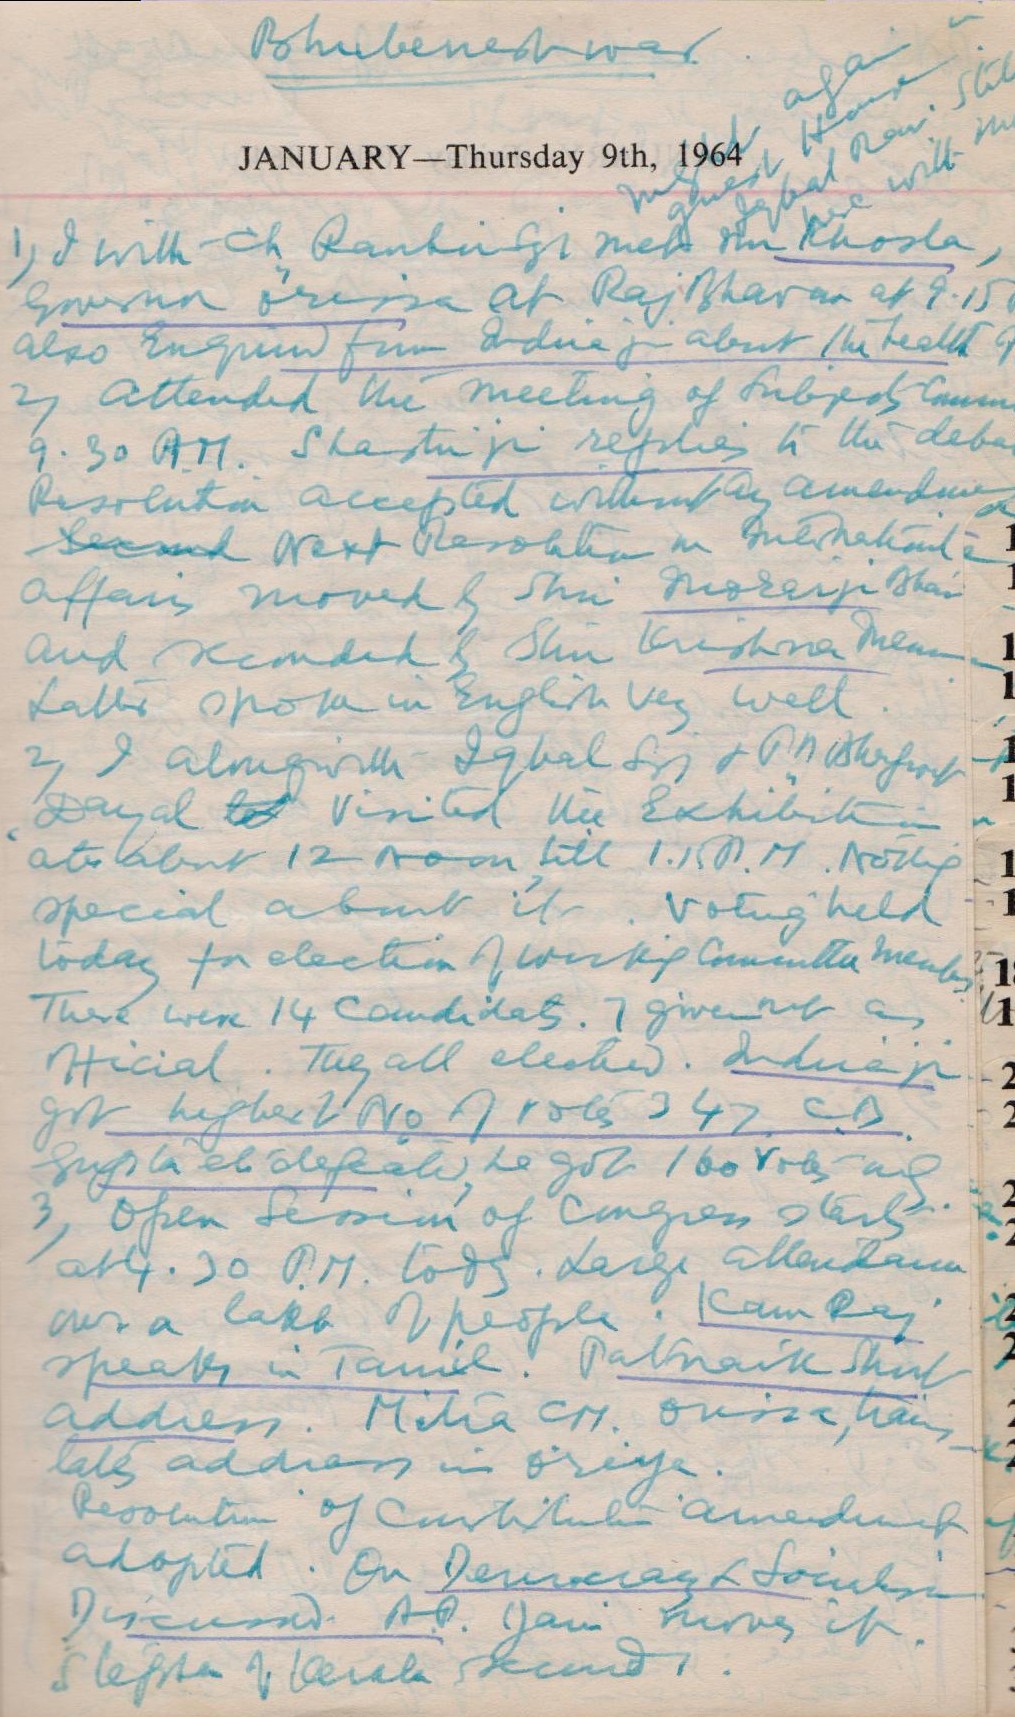 Bhubeneshwar.
night again
guest House
Iqbal Ravi Still
here with me
JANUARY—Thursday 9th, 1964
1, I with Ch Ranbir Sgh met Shri Khosla,
Governor Orissa at Raj Bhavan at 9.15
also Enquired from Indiraji about the health of
2, Attended the meeting of Subjects Comm
9.30 A.M. Shastriji replies to the deba
Resolution accepted without any amendmen
Second Next Resolution on International
affairs moved by Shri Morarji Bhai
and seconded by Shri Krishna Menon
Latter spoke in English very well.
2, I alongwith Iqbal Sgj & Pt. Bhagwat
Dayal visited the Exhibition
at about 12 Noon, till 1.15 P.M. Nothig
special about it. Voting held
today for election of working Committee Members
There were 14 Candidates. 7 given out as
official. They all elected. Indiraji
got highest No of votes 347. C.B.
Gupta defeated, he got 160 votes
3, Open Session of Congress starts.
at 4.30 P.M. today. Large attendance
over a lakh of people. Kam Raj
speaks in Tamil. Patnaik Short
address. Mitra CM. Orissa, trans
lates address in oriya.
Resolution of Constitution amendment
adopted. On Democracy & Socialism
Discussed. A.P. Jain moves it.
Stephen of Kerala seconds.